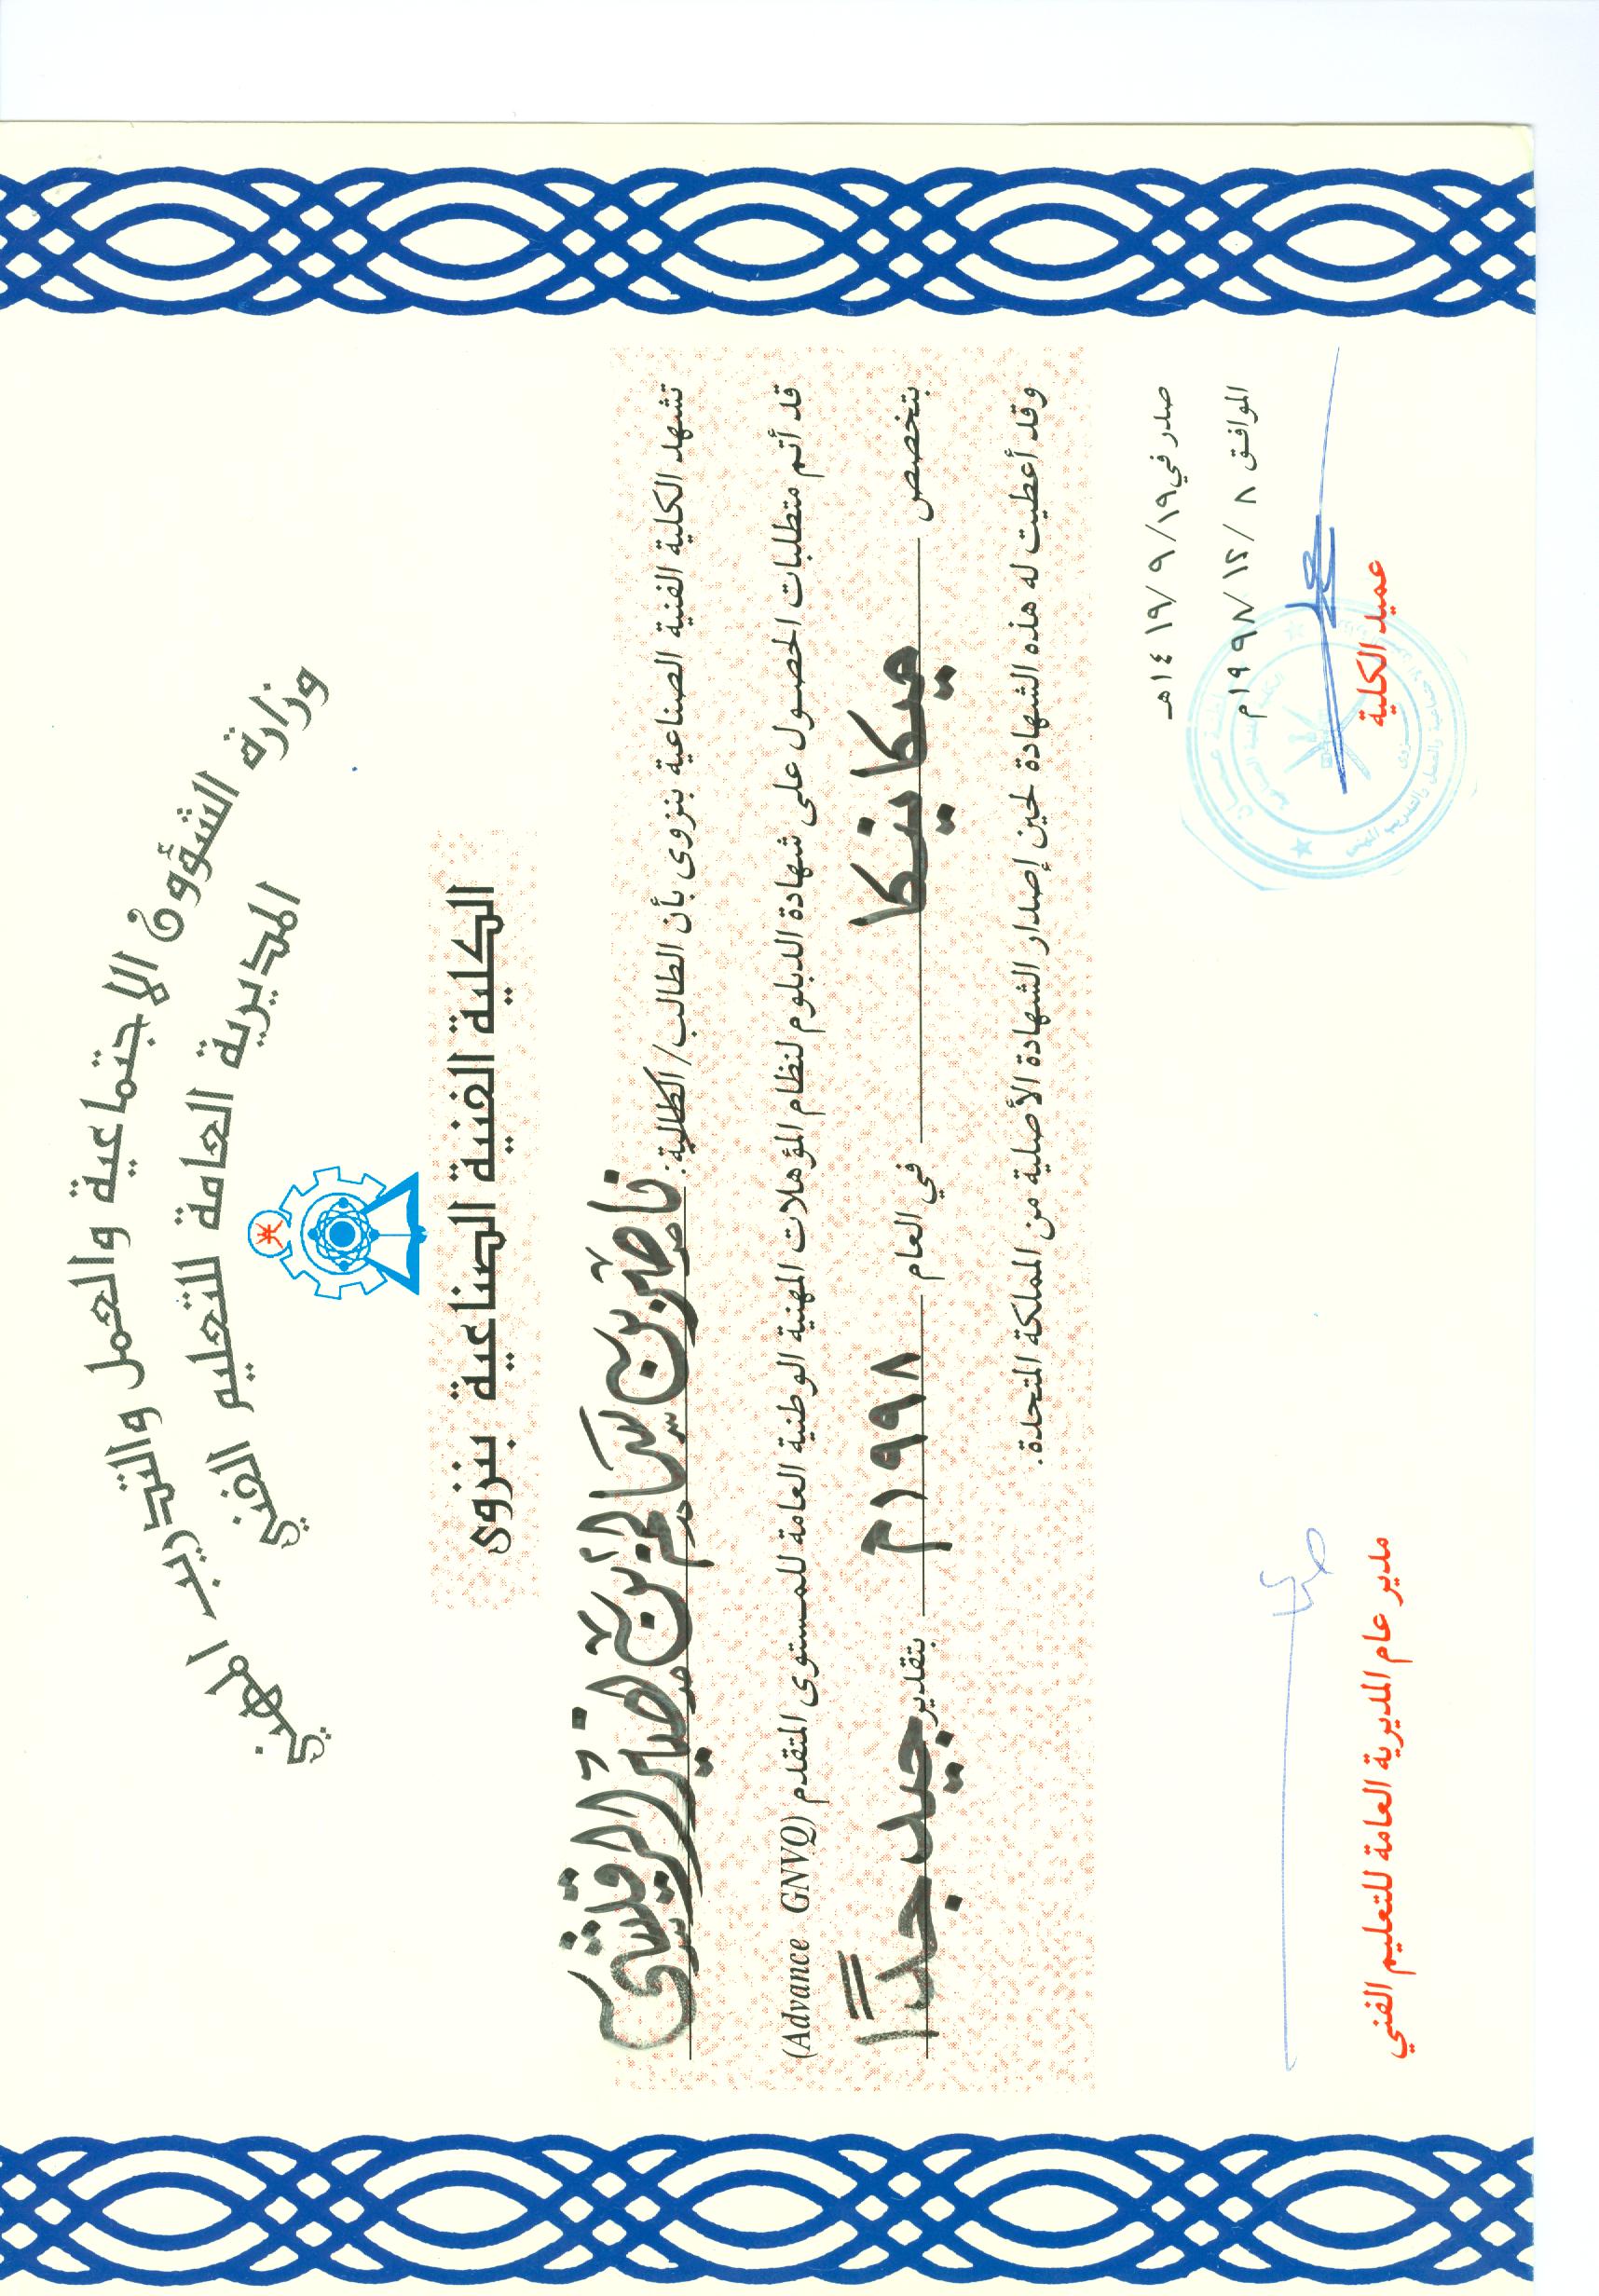 وزارة الشؤون الاجتماعية والعمل والتدريب المهني
المديرية العامة للتعليم الفني
الكلية الفنية الصناعية بنزوى
تشهد الكلية الفنية الصناعية بنزوى بأن الطالب/الطالبة: ناصر بن سالم بن نصير الرقيشي
قد أتم متطلبات الحصول على شهادة الدبلوم لنظام المؤهلات المهنية الوطنية العامة للمستوى المتقدم (Advance GNVQ)
بتخصص ميكانيكا في العام ١٩٩٨م بتقدير جيد جداً
وقد أعطيت له هذه الشهادة لحين إصدار الشهادة الأصلية من المملكة المتحدة.
صدر في ١٩/ ٩ /١٤١٩هـ
الموافق ٨ /١٢/ ١٩٩٨م
عميد الكلية
مدير عام المديرية العامة للتعليم الفني